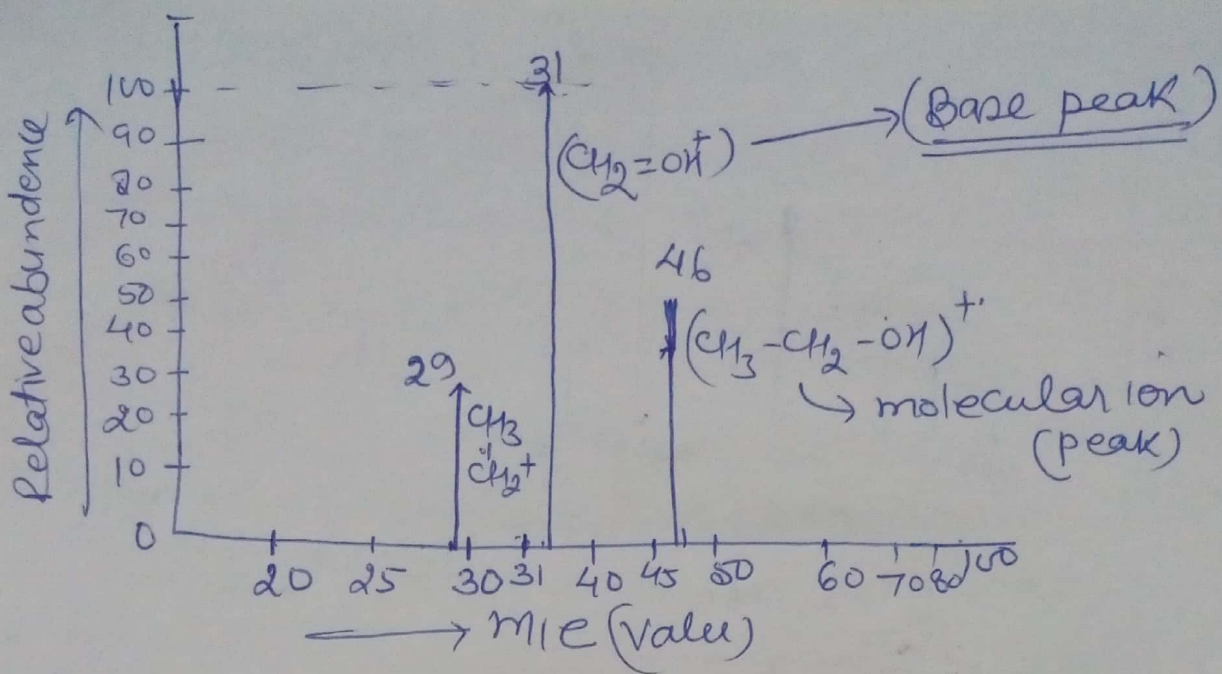 Relative abundence
100
90
80
70
60
50
40
30
20
10
0
31
(CH2=OH+) → (Base peak)
46
(CH3-CH2-OH)+.
↳ molecular ion
(peak)
29
CH3
CH2+
20 25 30 31 40 45 50 60 70 80 100
→ m/e (Value)